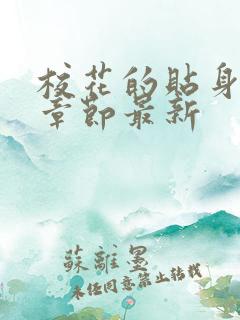 校花的貼身
章節最新
蘇離墨
未经同意禁止转载